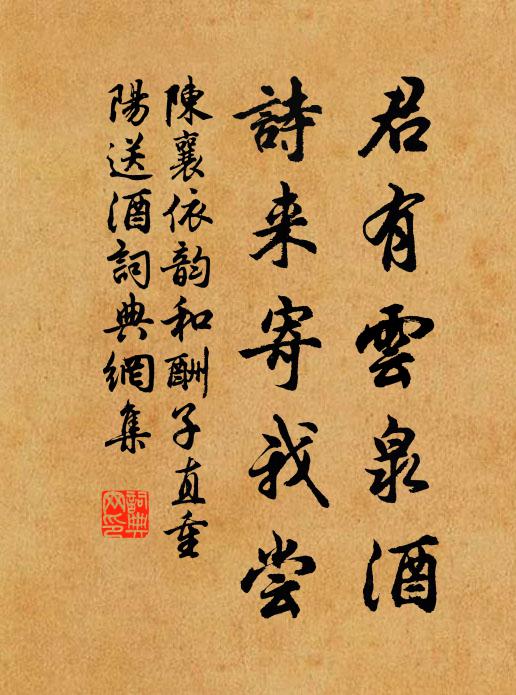 君有雲泉酒
詩来寄我尝
陳襄依韵和酬子直重
陽送酒詞典網集
詞典
网印